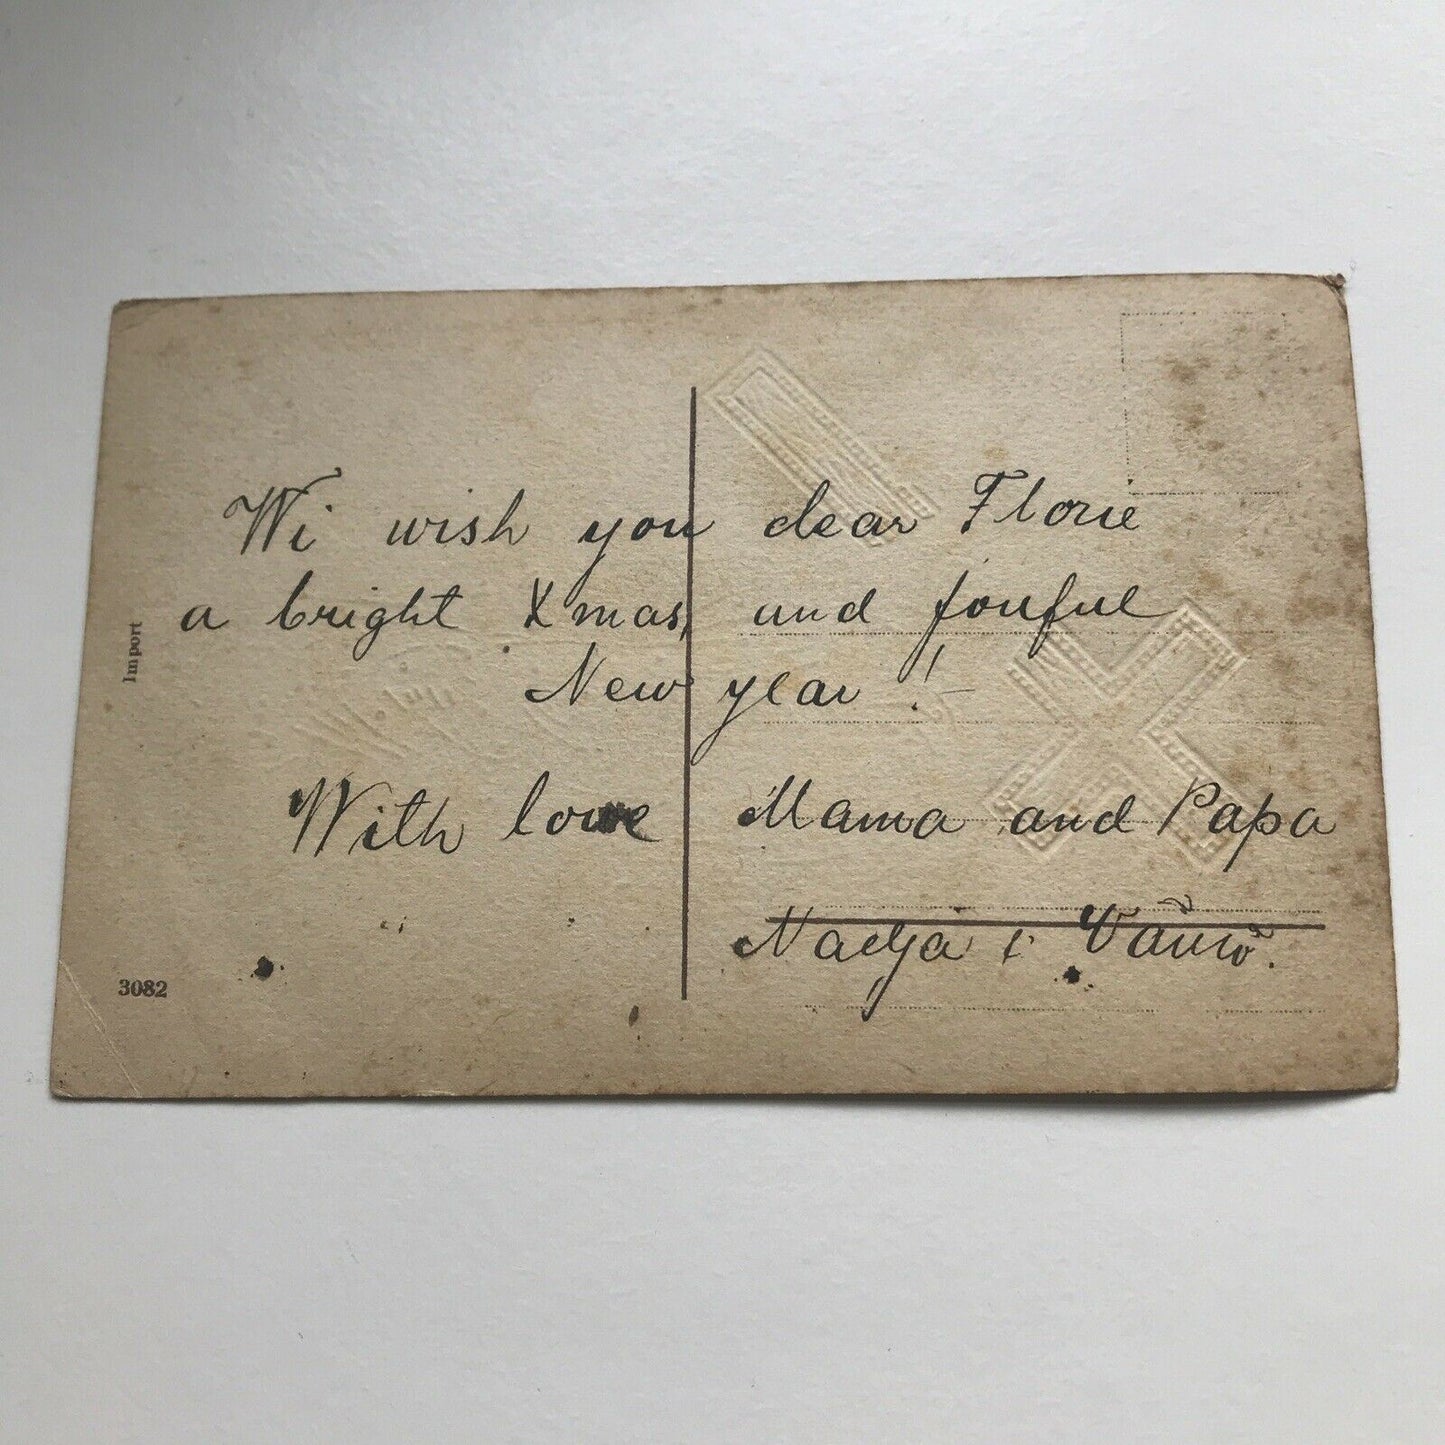 Wi wish you dear Florie
a bright Xmas, and jouful
New year !-
With love Mama and Papa
Nadja &
Import
3082